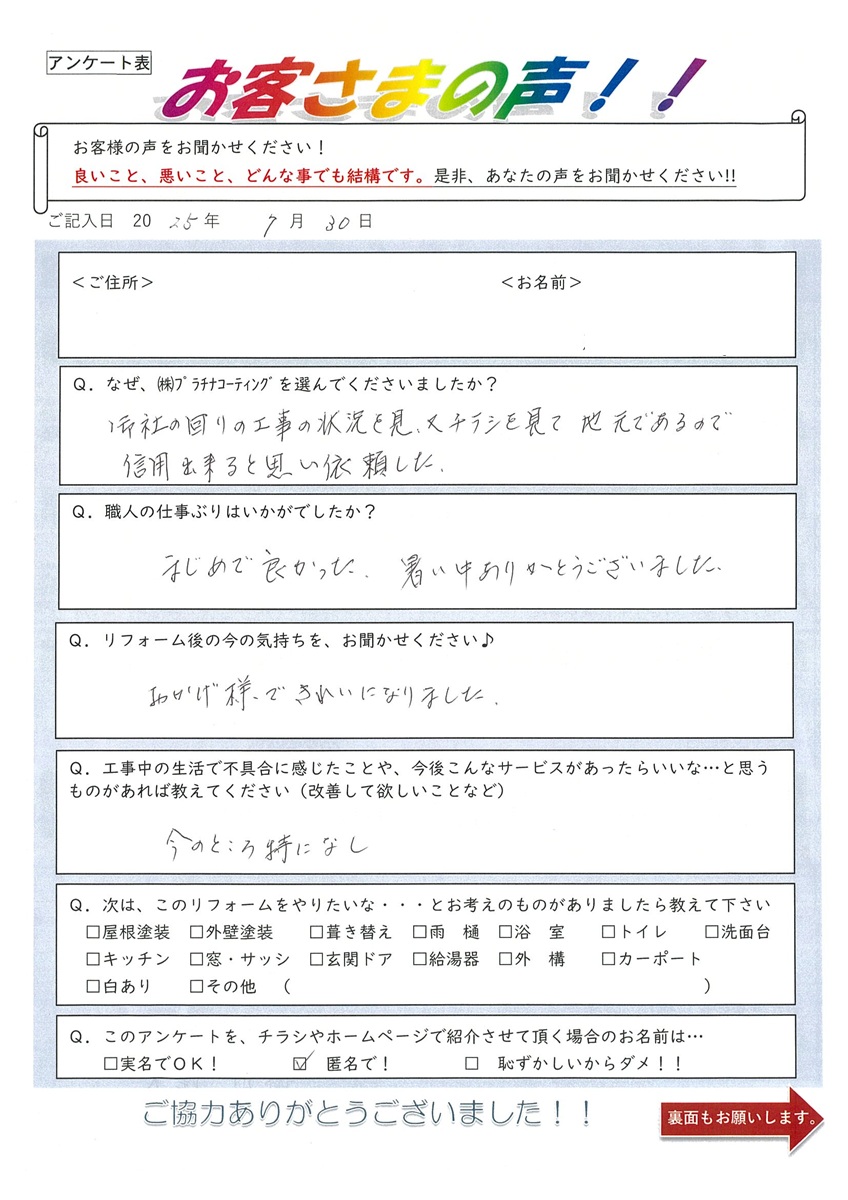 アンケート表
お客さまの声！！
お客様の声をお聞かせください！
良いこと、悪いこと、どんな事でも結構です。是非、あなたの声をお聞かせください!!
ご記入日 2025年 7月 30日
＜ご住所＞ ＜お名前＞
Q．なぜ、㈱ﾌﾟﾗﾁﾅｺｰﾃｨﾝｸﾞを選んでくださいましたか？
御社の回りの工事の状況を見、又チラシを見て 地元であるので
信用出来ると思い依頼した.
Q．職人の仕事ぶりはいかがでしたか？
まじめで良かった. 暑い中ありがとうございました.
Q．リフォーム後の今の気持ちを、お聞かせください♪
おかげ様で きれいになりました.
Q．工事中の生活で不具合に感じたことや、今後こんなサービスがあったらいいな…と思う
ものがあれば教えてください（改善して欲しいことなど）
今のところ特になし
Q．次は、このリフォームをやりたいな・・・とお考えのものがありましたら教えて下さい
□屋根塗装 □外壁塗装 □葺き替え □雨 樋 □浴 室 □トイレ □洗面台
□キッチン □窓・サッシ □玄関ドア □給湯器 □外 構 □カーポート
□白あり □その他 （ ）
Q．このアンケートを、チラシやホームページで紹介させて頂く場合のお名前は…
□実名でＯＫ！ ☑ 匿名で！ □ 恥ずかしいからダメ！！
ご協力ありがとうございました！！
裏面もお願いします。